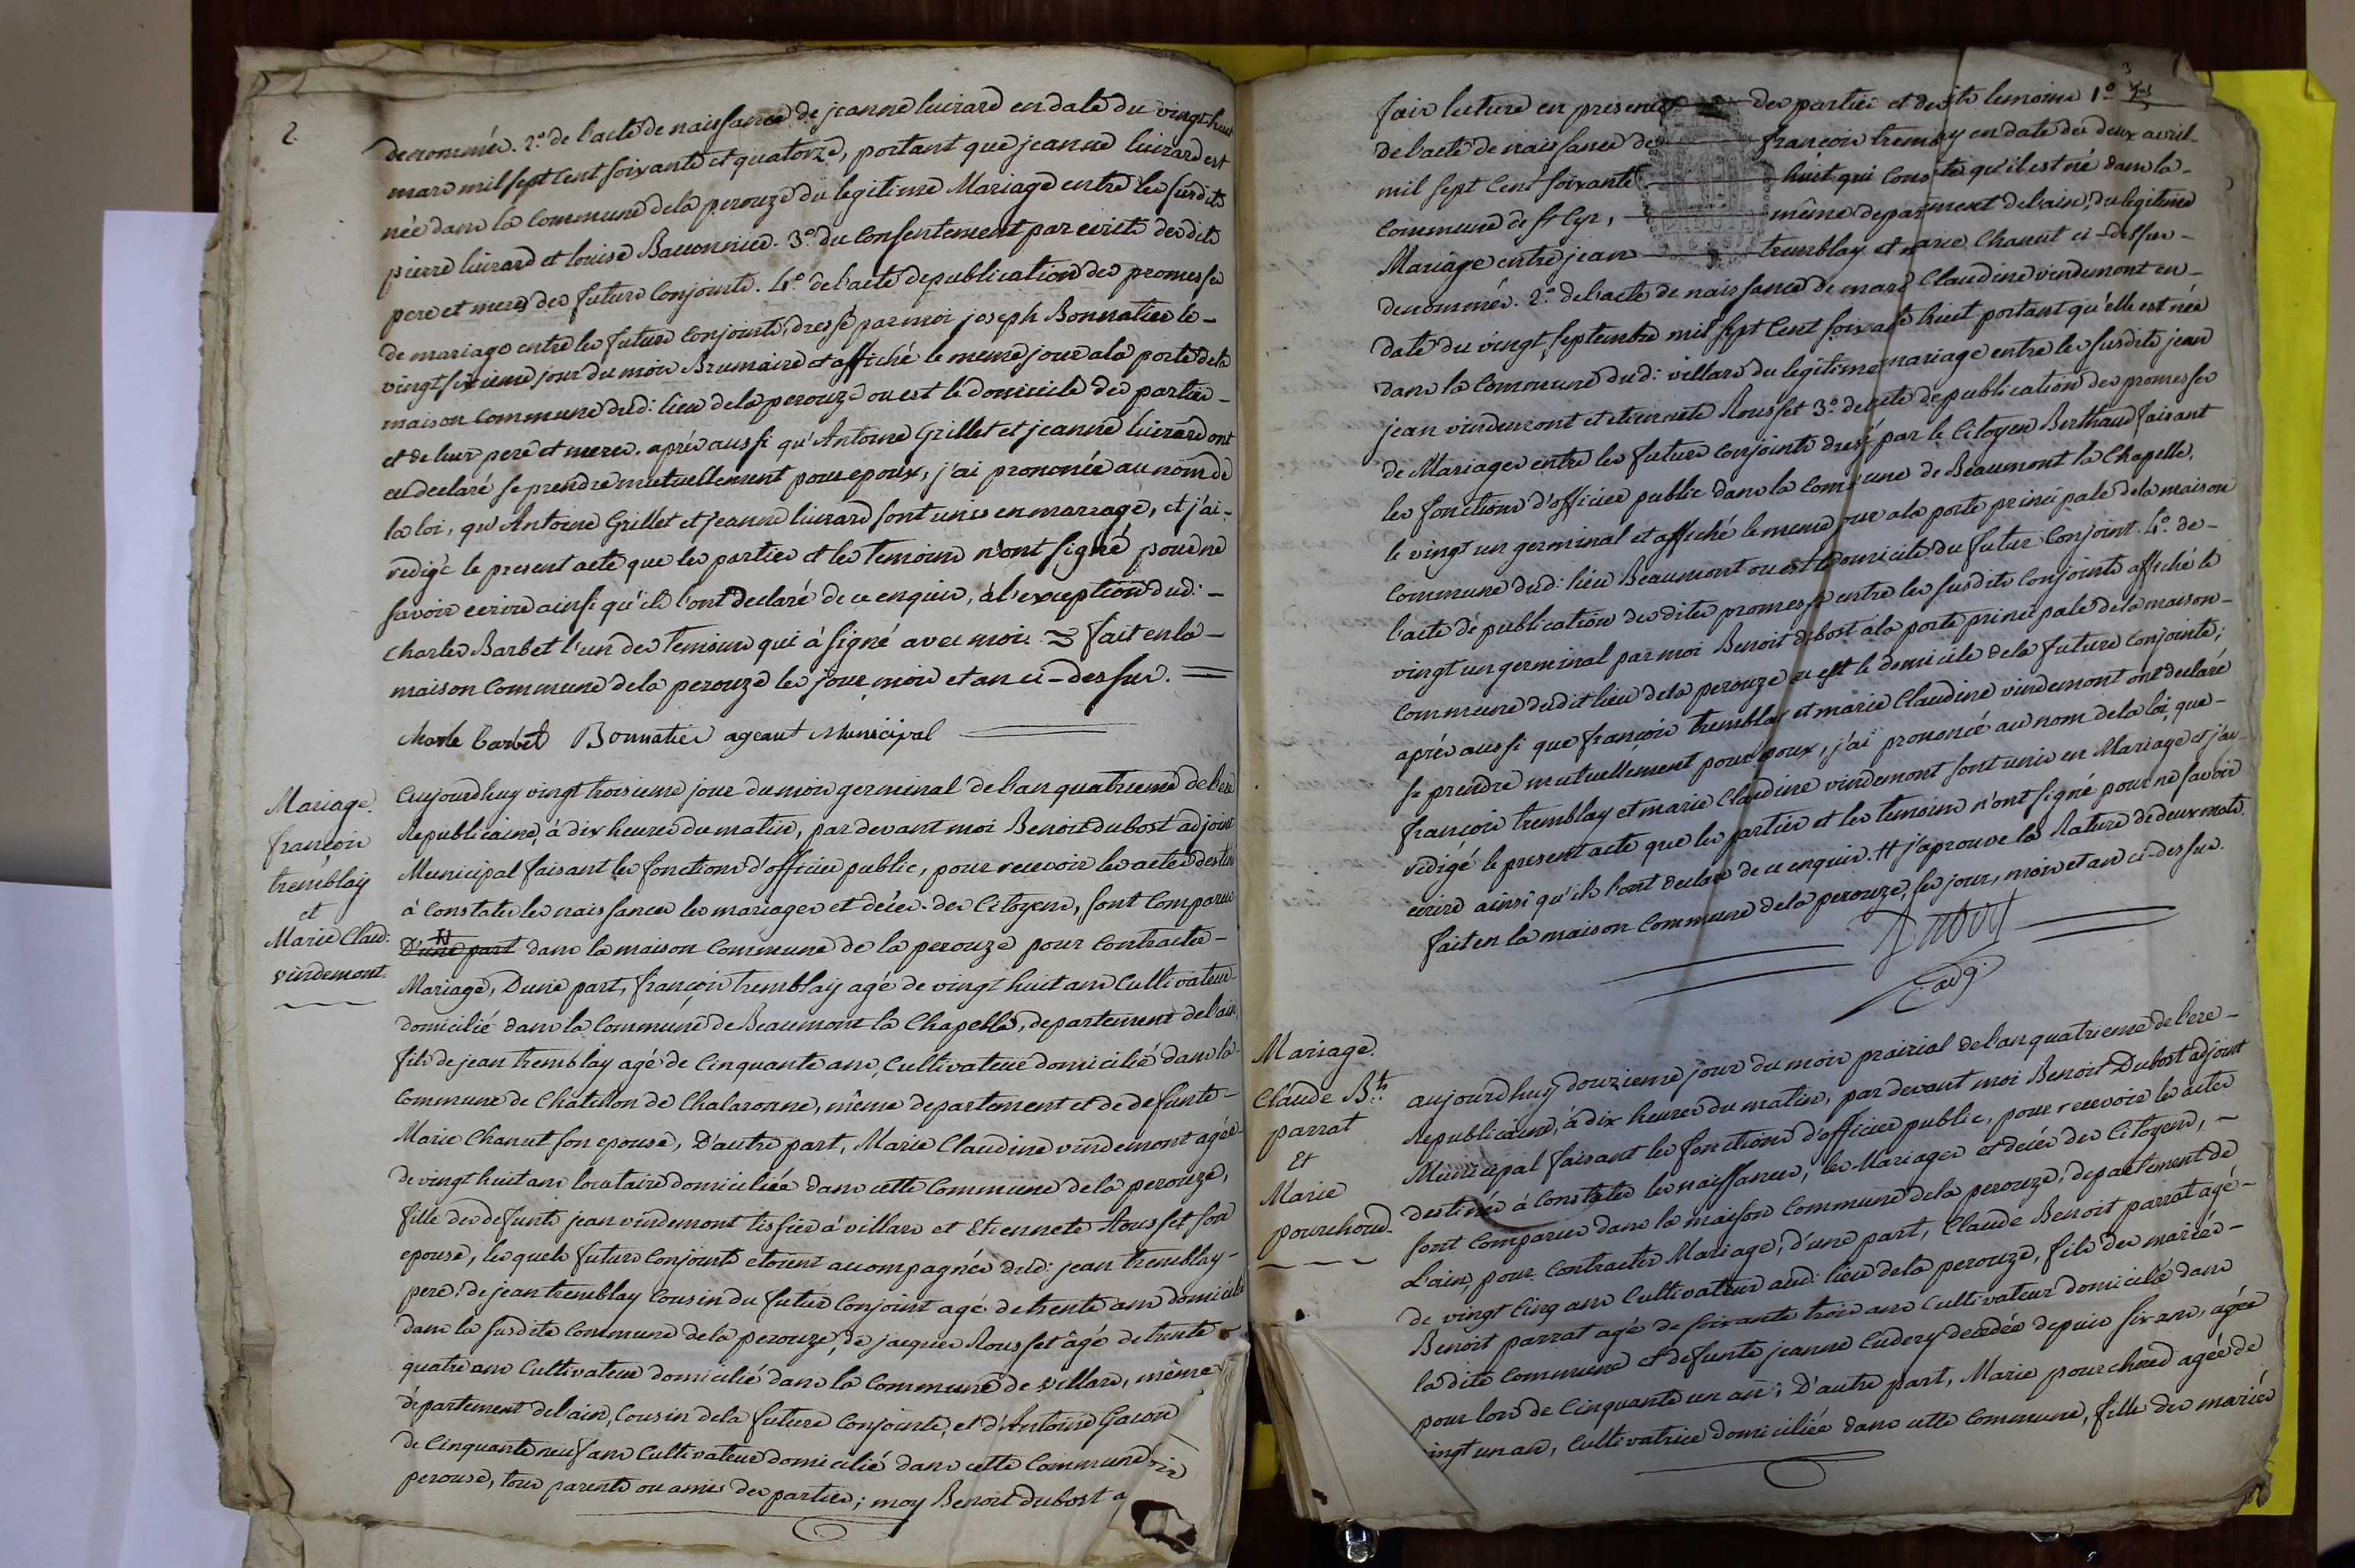 2.
denommés. 2.° de l'acte de naissance de jeanne luizard en date du vingt huit
mars mil sept cent soixante et quatorze, portant que jeanne luizard est
née dans la commune de la perouze du legitime Mariage entre les susdits
pierre luizard et louise Bauonnier. 3.° du consentement par ecrits desdits
pere et meres des futurs conjoints. 4.° de l'acte de publication des promesses
de mariage entre les futurs conjoints, dressé par moi joseph Bonnatier le -
vingt sixieme jour du mois Brumaire et affiché le meme jour a la porte de la
maison commune dud: lieu de la perouze ou est le domicile des parties -
et de leur pere et meres. après aussi qu'Antoine Grillet et jeanne luizard ont
eu declaré se prendre mutuellement pour epoux, j'ai prononcée au nom de
la loi, qu'Antoine Grillet et jeanne luizard sont unis en mariage, et j'ai -
redigé le present acte que les parties et les temoins n'ont signé pour ne
savoir ecrire ainsi qu'ils l'ont declaré de ce enquis, à l'exception dud: -
Charles Barbet l'un des temoins qui à signé avec moi. fait en la -
maison commune de la perouze les jour, mois et an ci-dessus.
Charle barbet Bonnatier ageant Municipal
Mariage.
françois
tremblay
et
Marie Claud:
vindemont.
aujourdhuy vingt troisieme jour du mois germinal de l'an quatrieme de l'ere
Republicaine, à dix heures du matin, par devant moi Benoit dubost adjoint
Municipal faisant les fonctions d'officier public, pour recevoir les actes destinés
à constater les naissances les mariages et décès des Citoyens, sont comparus
D'une part dans la maison commune de la perouze pour contracter -
Mariage, D'une part, françois tremblay agé de vingt huit ans Cultivateur
domicilié dans la commune de Beaumont la Chapelle, departement de l'ain,
fils de jean tremblay agé de Cinquante ans, Cultivateur domicilié dans la
Commune de Châtillon de Chalaronne, même departement et de defunte -
Marie Chanut son epouse, D'autre part, Marie Claudine vindemont agée -
de vingt huit ans locataire domiciliée dans cette Commune de la perouze,
fille des defunts jean vindemont tissier à villars et Etiennete Rousset son
epouse, lesquels futurs conjoints etoient accompagnés dud: jean tremblay -
pere, de jean tremblay Cousin du futur conjoint agé de trente ans domicilié
dans la susdite Commune de la perouze, de jacques Rousset âgé de trente
quatre ans Cultivateur domicilié dans la Commune de villars, même
departement de l'ain, Cousin de la future conjointe, et d'Antoine Gacon
de Cinquante neuf ans Cultivateur domicilié dans cette Commune
perouse, tous parents ou amis des parties; moy Benoit dubost a
3
fait lecture en presence des parties et desdits temoins 1.°
de l'acte de naissance de françois tremblay en date du deux avril
mil sept cent soixante huit qui constate qu'il est né dans la -
commune de St Cyr, même departement de l'ain, du legitime
Mariage entre jean tremblay et marie Chanut ci-dessus -
denommés. 2.° de l'acte de naissance de marie Claudine vindemont en -
date du vingt septembre mil sept cent soixante huit portant qu'elle est née
dans la commune dud: villars du legitime mariage entre les susdits jean
jean vindemont et etiennete Rousset 3.° de l'acte de publication des promesses
de Mariages entre les futurs conjoints dressé par le Citoyen Berthaud faisant
les fonctions d'officier public dans la commune de Beaumont la Chapelle,
le vingt un germinal et affiché le meme jour a la porte principale de la maison
commune dud: lieu Beaumont ou est le domicile du futur conjoint. 4.° de -
l'acte de publication desdites promesses entre les susdits conjoints affiché le
vingt un germinal par moi Benoit dubost a la porte principale de la maison -
commune dudit lieu de la perouze ou est le domicile de la future conjointe;
après aussi que françois tremblay et marie Claudine vindemont ont declaré
se prendre mutuellement pour epoux, j'ai prononcé au nom de la loi, que -
françois tremblay et marie Claudine vindemont sont unis en Mariage et j'ay
redigé le present acte que les parties et les temoins n'ont signé pour ne savoir
ecrire ainsi qu'ils l'ont declaré de ce enquis. # j'aprouve la Rature de deux mots.
fait en la maison commune de la perouze, les jour, mois et an ci-dessus.
Dubost
adj
Mariage.
Claude B.t
parrat
Et
Marie
pourchoud.
aujourdhuy douzieme jour du mois prairial de l'an quatrieme de l'ere -
Republicaine, à dix heures du matin, par devant moi Benoit Dubost adjoint
Municipal faisant les fonctions d'officier public, pour recevoir les actes
destinés à constater les naissances, les Mariages et décès des Citoyens, -
sont comparus dans la maison commune de la perouze, departement de
L'ain, pour contracter Mariage, d'une part, Claude Benoit parrat agé -
de vingt cinq ans Cultivateur aud: lieu de la perouze, fils des mariés -
Benoit parrat agé de soixante trois ans Cultivateur domicilié dans
la dite commune et defunte jeanne Cudery decedée depuis six ans, agée
pour lors de Cinquante un an; D'autre part, Marie pourchoud agée de
vingt un an, Cultivatrice domiciliée dans cette Commune, fille des mariés